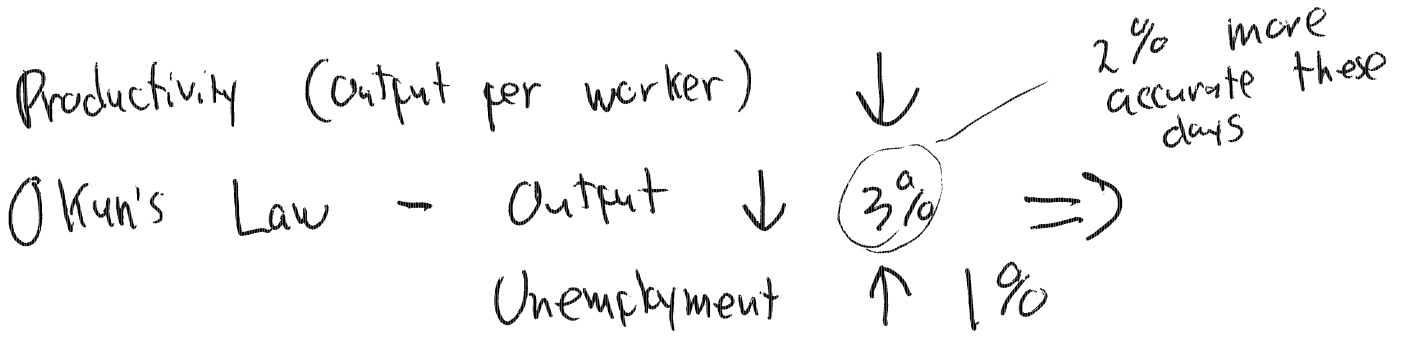 Productivity (Output per worker) ↓
2% more
accurate these
days
Okun's Law - Output ↓ 3% =>
Unemployment ↑ 1%